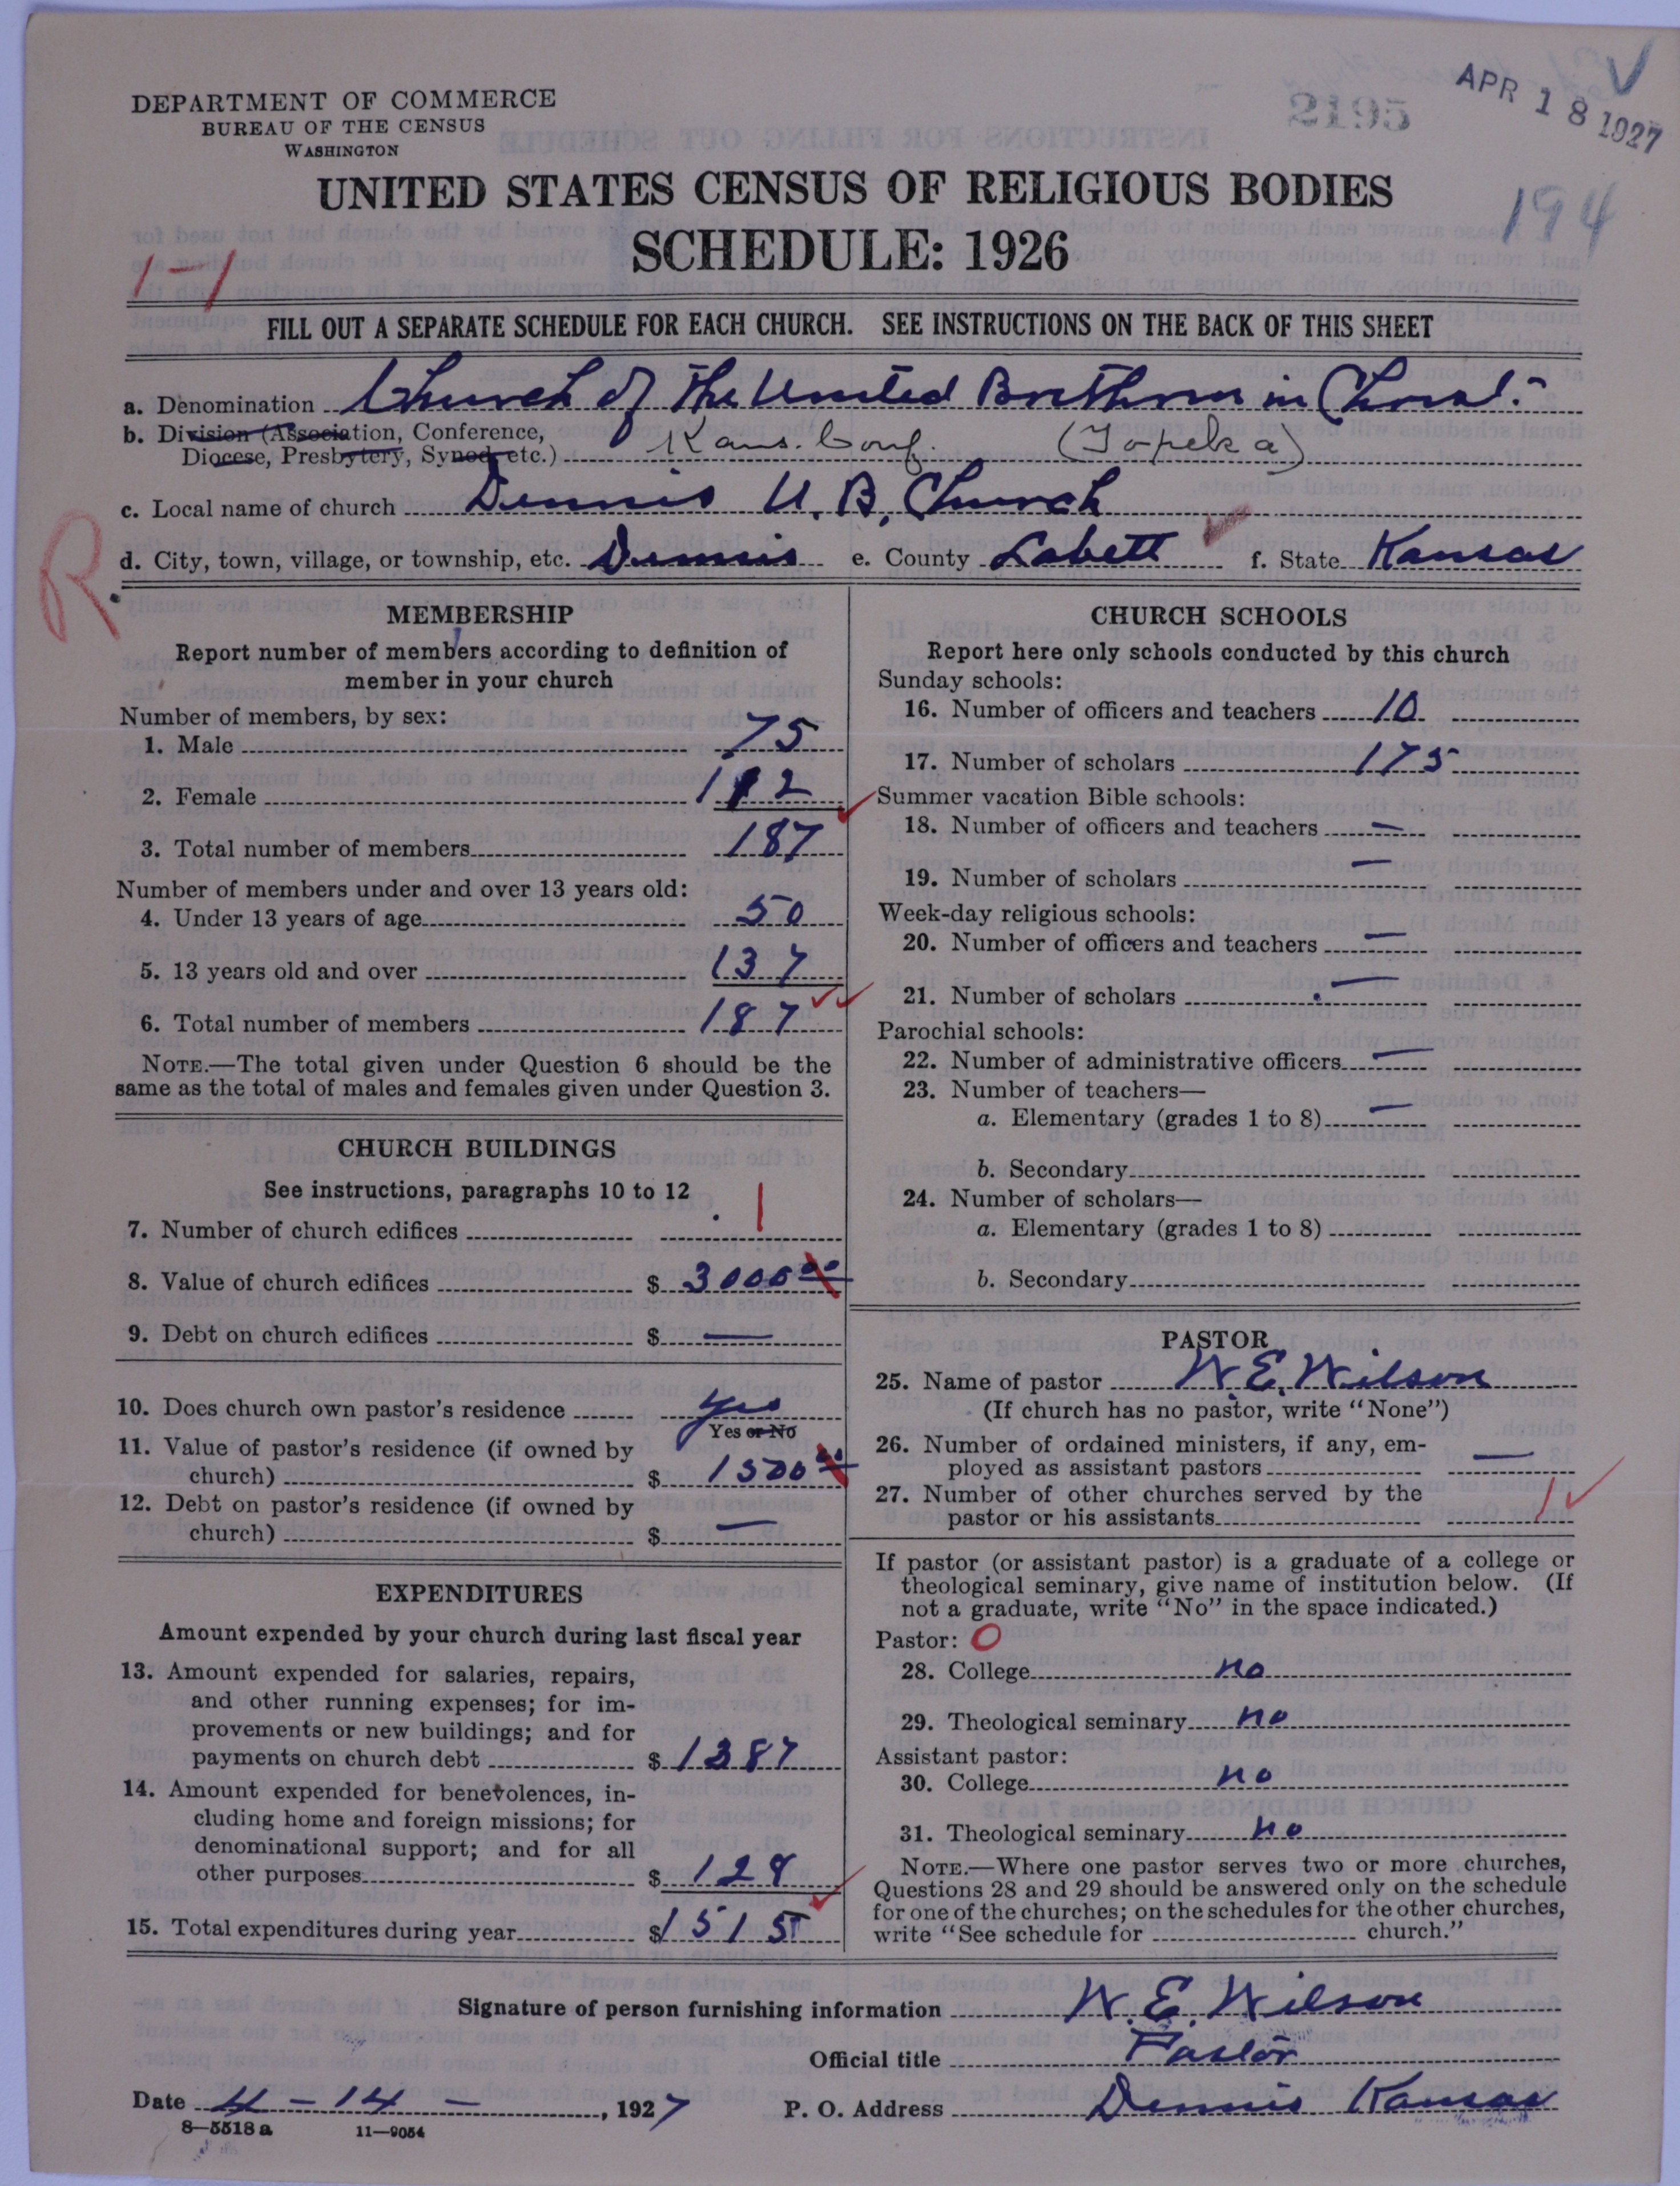 APR 18 1927
2195
194
DEPARTMENT OF COMMERCE
BUREAU OF THE CENSUS
WASHINGTON
UNITED STATES CENSUS OF RELIGIOUS BODIES
SCHEDULE: 1926
1-1
FILL OUT A SEPARATE SCHEDULE FOR EACH CHURCH. SEE INSTRUCTIONS ON THE BACK OF THIS SHEET
a. Denomination Church of the United Brethren in Christ.
b. Division (Association, Conference,
Diocese, Presbytery, Synod, etc.) Kans. Conf. (Topeka)
c. Local name of church Dennis U. B. Church
d. City, town, village, or township, etc. Dennis e. County Labett f. State Kansas
R
MEMBERSHIP
Report number of members according to definition of
member in your church
Number of members, by sex:
1. Male 75
2. Female 112
3. Total number of members 187
Number of members under and over 13 years old:
4. Under 13 years of age 50
5. 13 years old and over 137
6. Total number of members 187
NOTE.—The total given under Question 6 should be the
same as the total of males and females given under Question 3.
CHURCH BUILDINGS
See instructions, paragraphs 10 to 12
7. Number of church edifices 1
8. Value of church edifices $ 3000 00
9. Debt on church edifices $ —
10. Does church own pastor's residence yes
Yes or No
11. Value of pastor's residence (if owned by
church) $ 1500 00
12. Debt on pastor's residence (if owned by
church) $ —
EXPENDITURES
Amount expended by your church during last fiscal year
13. Amount expended for salaries, repairs,
and other running expenses; for im-
provements or new buildings; and for
payments on church debt $ 1387
14. Amount expended for benevolences, in-
cluding home and foreign missions; for
denominational support; and for all
other purposes $ 128
15. Total expenditures during year $ 1515
CHURCH SCHOOLS
Report here only schools conducted by this church
Sunday schools:
16. Number of officers and teachers 10
17. Number of scholars 175
Summer vacation Bible schools:
18. Number of officers and teachers —
19. Number of scholars —
Week-day religious schools:
20. Number of officers and teachers —
21. Number of scholars —
Parochial schools:
22. Number of administrative officers —
23. Number of teachers—
a. Elementary (grades 1 to 8) —
b. Secondary
24. Number of scholars—
a. Elementary (grades 1 to 8)
b. Secondary
PASTOR
25. Name of pastor W. E. Wilson
(If church has no pastor, write "None")
26. Number of ordained ministers, if any, em-
ployed as assistant pastors —
27. Number of other churches served by the
pastor or his assistants 1
If pastor (or assistant pastor) is a graduate of a college or
theological seminary, give name of institution below. (If
not a graduate, write "No" in the space indicated.)
Pastor: O
28. College no
29. Theological seminary no
Assistant pastor:
30. College no
31. Theological seminary no
NOTE.—Where one pastor serves two or more churches,
Questions 28 and 29 should be answered only on the schedule
for one of the churches; on the schedules for the other churches,
write "See schedule for church."
Signature of person furnishing information W. E. Wilson
Official title Pastor
Date 4 - 14 - , 1927 P. O. Address Dennis Kansas
8—5518 a 11—9054